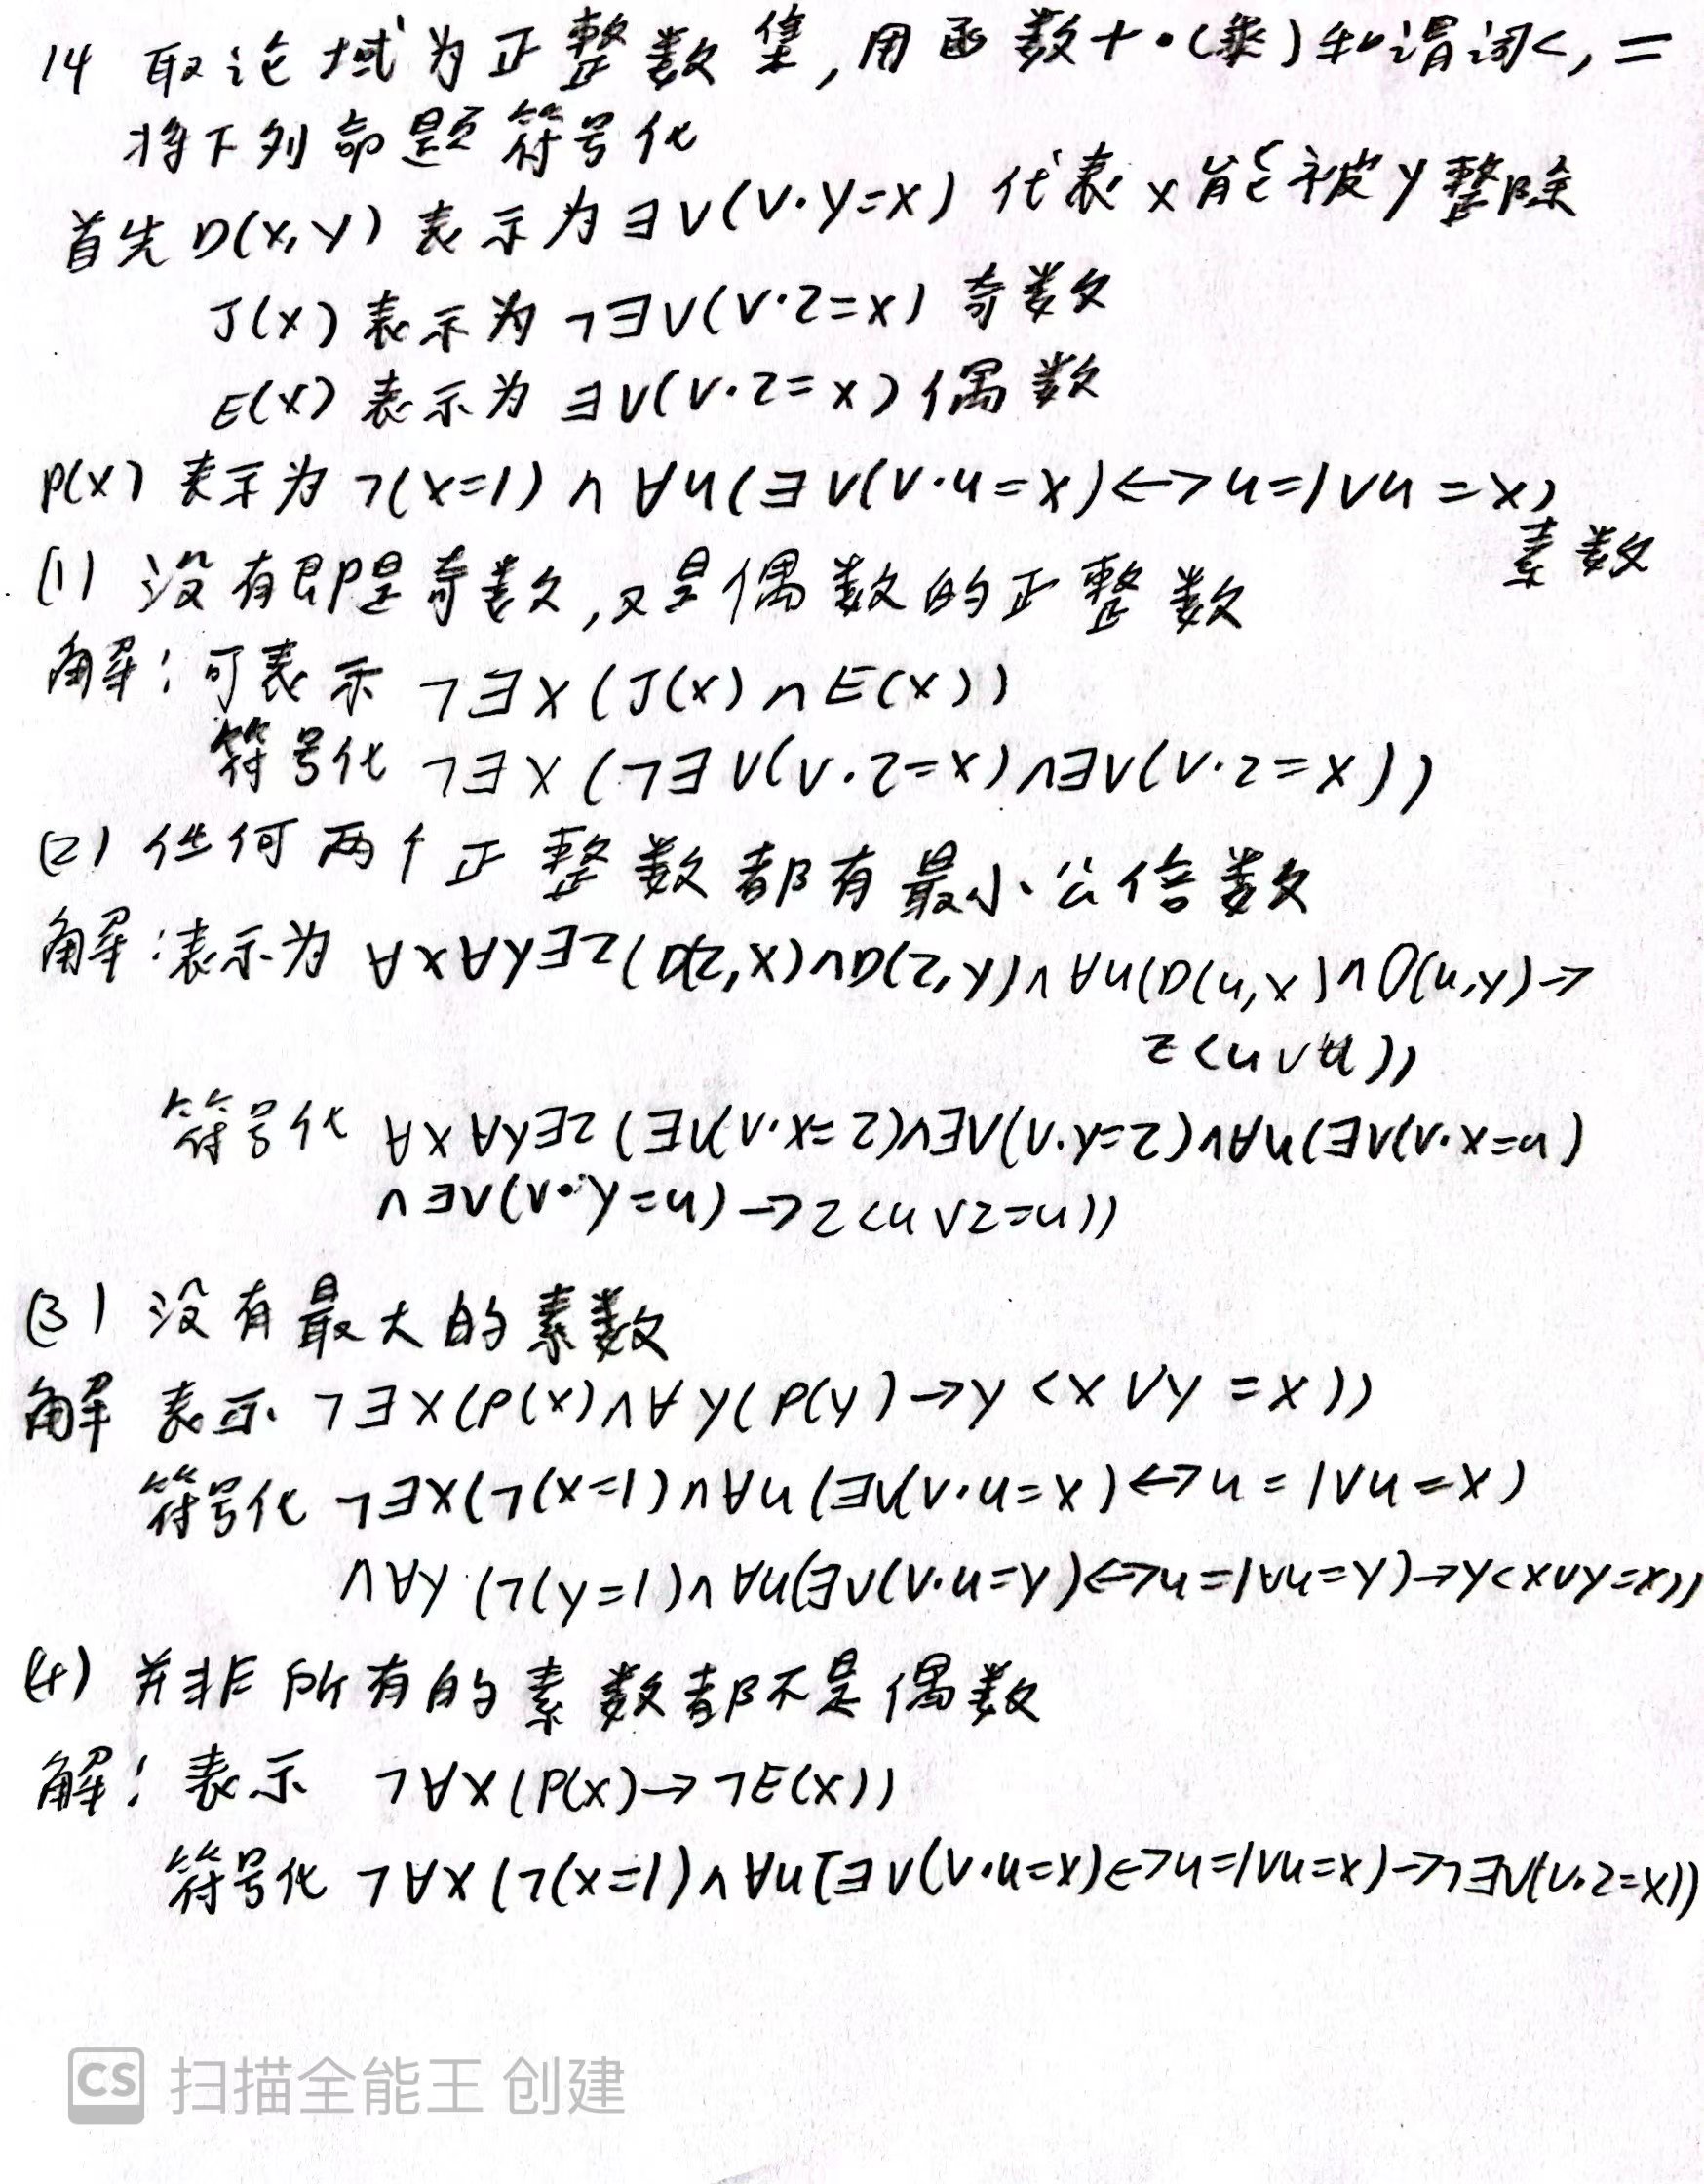 14 取论域为正整数集,用函数+·(乘)和谓词<,=
将下列命题符号化
首先D(x,y)表示为∃v(v·y=x) 代表x能被y整除
J(x)表示为¬∃v(v·2=x) 奇数
E(x)表示为∃v(v·2=x)偶数
P(x)表示为¬(x=1)∩∀u(∃v(v·u=x)<->u=1∨u=x)
素数
(1) 没有即是奇数,又是偶数的正整数
解:可表示 ¬∃x(J(x)∩E(x))
符号化 ¬∃x(¬∃v(v·2=x)∩∃v(v·2=x))
(2) 任何两个正整数都有最小公倍数
解:表示为 ∀x∀y∃z(D(z,x)∩D(z,y)∩∀u(D(u,x)∩D(u,y)->
z<u∨
))
符号化 ∀x∀y∃z(∃v(v·x=z)∩∃v(v·y=z)∩∀u(∃v(v·x=u)
∩∃v(v·y=u)->z<u∨z=u))
(3) 没有最大的素数
解 表示 ¬∃x(P(x)∩∀y(P(y)->y<x∨y=x))
符号化 ¬∃x(¬(x=1)∩∀u(∃v(v·u=x)<->u=1∨u=x)
∩∀y(¬(y=1)∩∀u(∃v(v·u=y)<->u=1∨u=y)->y<x∨y=x))
(4) 并非所有的素数都不是偶数
解:表示 ¬∀x(P(x)->¬E(x))
符号化 ¬∀x(¬(x=1)∩∀u(∃v(v·u=x)<->u=1∨u=x)->¬∃v(v·2=x))
CS 扫描全能王 创建